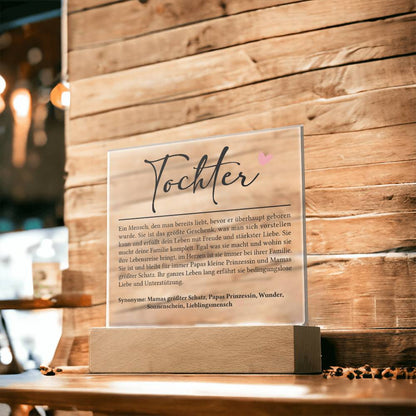 Tochter
Ein Mensch, den man bereits liebt, bevor er überhaupt geboren
wurde. Sie ist das größte Geschenk, was man sich vorstellen
kann und erfüllt dein Leben mit Freude und stärkster Liebe. Sie
macht deine Familie komplett. Egal was sie macht und wohin sie
ihre Lebensreise bringt, im Herzen ist sie immer bei ihrer Familie.
Sie ist und bleibt für immer Papas kleine Prinzessin und Mamas
größter Schatz. Ihr ganzes Leben lang erfährt sie bedingungslose
Liebe und Unterstützung.
Synonyme: Mamas größter Schatz, Papas Prinzessin, Wunder,
Sonnenschein, Lieblingsmensch